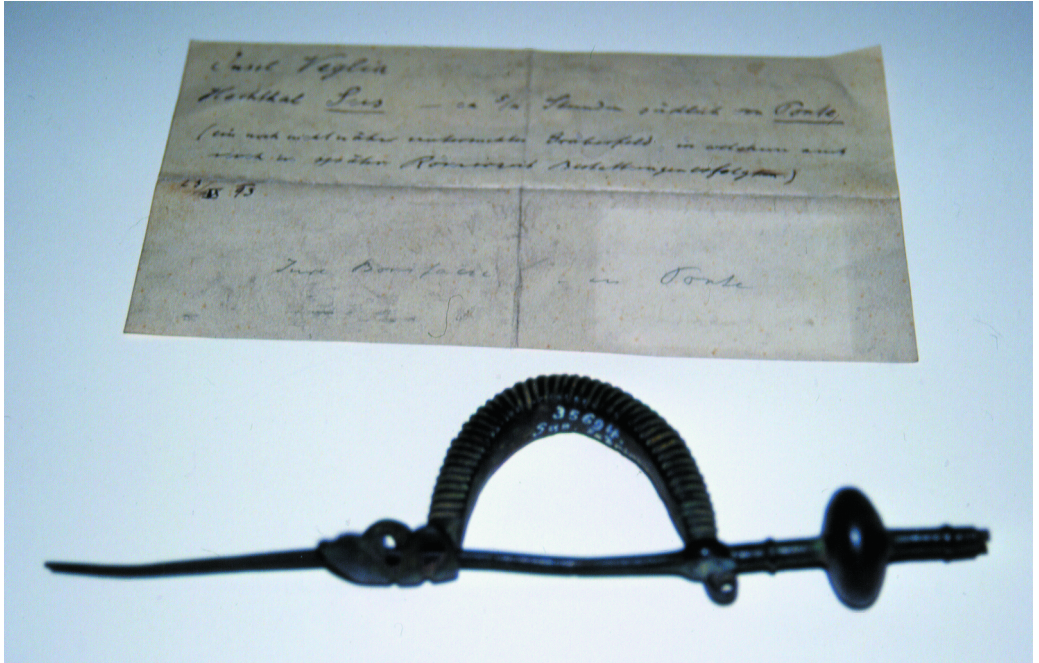 Insel Veglia
Hochthal Sus — ca 5/4 Stunden südlich von Ponte
(ein noch nicht näher untersuchtes Gräberfeld in welchem auch
noch in später Römerzeit Bestattungen erfolgten)
93
Bonifacic in Ponte
35694
San